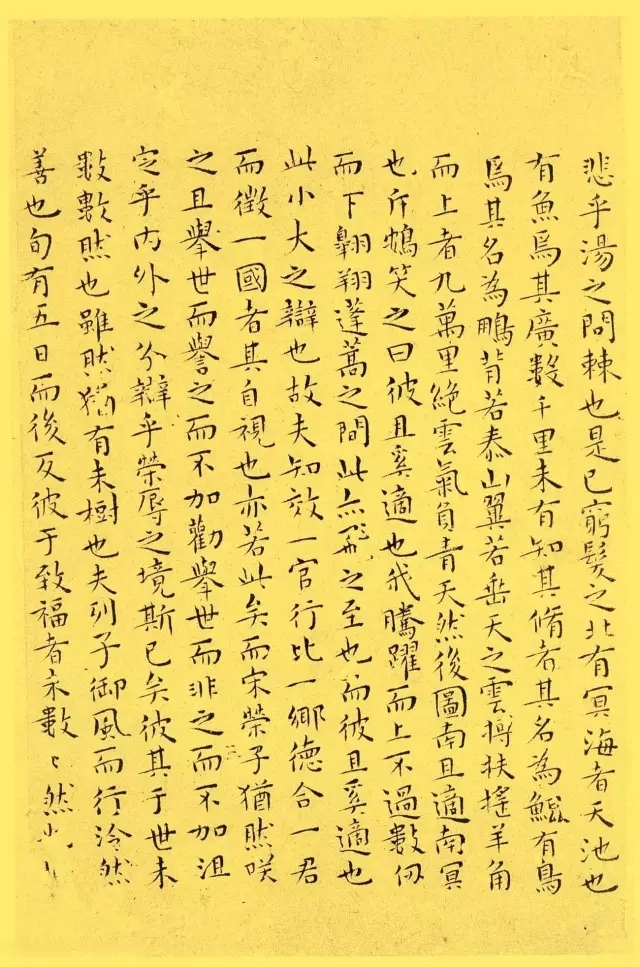 悲乎湯之問棘也是已窮髮之北有冥海者天池也
有魚焉其廣數千里未有知其脩者其名為鯤有鳥
焉其名為鵬背若泰山翼若垂天之雲摶扶搖羊角
而上者九萬里絕雲氣負青天然後圖南且適南冥
也斥鴳笑之曰彼且奚適也我騰躍而上不過數仞
而下翱翔蓬蒿之間此亦飛之至也而彼且奚適也
此小大之辯也故夫知效一官行比一鄉德合一君
而徵一國者其自視也亦若此矣而宋榮子猶然咲
之且舉世而譽之而不加勸舉世而非之而不加沮
定乎內外之分辯乎榮辱之境斯已矣彼其于世未
數數然也雖然猶有未樹也夫列子御風而行泠然
善也旬有五日而後反彼于致福者未數〻然